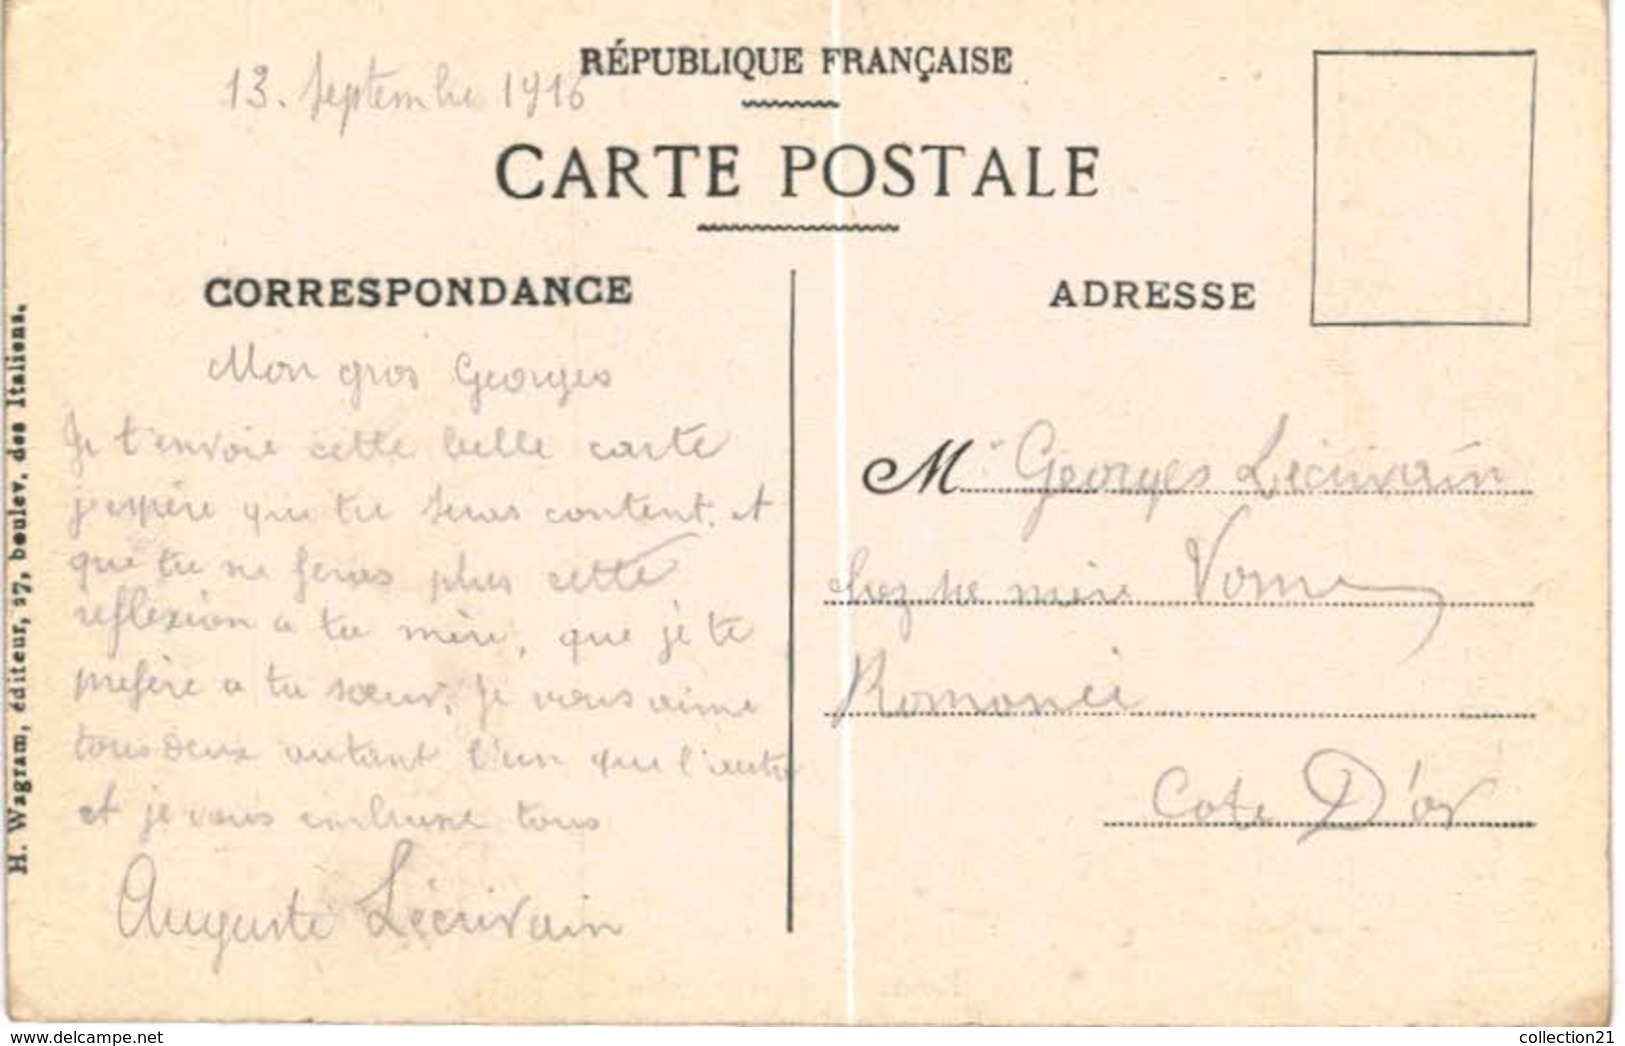 13. Septembre 1916
RÉPUBLIQUE FRANÇAISE
CARTE POSTALE
CORRESPONDANCE
Mon gros Georges
Je t'envoie cette belle carte
j'espère que tu seras content. et
que tu ne feras plus cette
reflexion a ta mère, que je te
préfère a ta sœur, Je vous aime
tous deux autant l'un que l'autre
et je vous embrasse tous
Auguste Lécrivain
ADRESSE
M. Georges Lécrivain
chez sa mère Vosne
Romanée
Cote D'or
H. Wagram, éditeur, 27, boulev. des Italiens.
delcampe.net
collection21